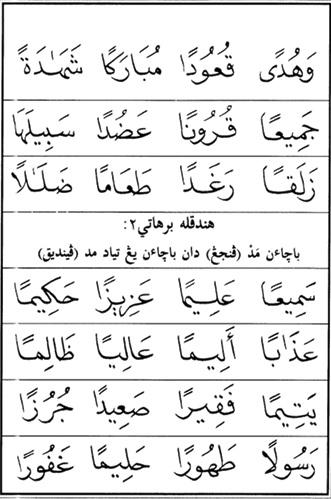 وَهُدًى قُعُودًا مُبَارَكًا شَهَادَةً
جَمِيعًا قُرُونًا عَضُدًا سَبِيلَهَا
زَلَقًا رَغَدًا طَعَامًا ضَلَالًا
هندقله برهاتي٢:
باچاءن مَدْ (ڤنجڠ) دان باچاءن يڠ تياد مد (ڤينديق)
سَمِيعًا عَلِيمًا عَزِيزًا حَكِيمًا
عَذَابًا أَلِيمًا عَالِيًا ظَالِمًا
يَتِيمًا فَقِيرًا صَعِيدًا جُرُزًا
رَسُولًا طَهُورًا حَلِيمًا غَفُورًا